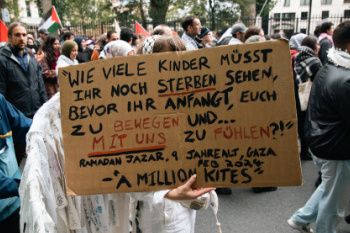 "WIE VIELE KINDER MÜSST
IHR NOCH STERBEN SEHEN,
BEVOR IHR ANFANGT, EUCH
ZU BEWEGEN UND...
MIT UNS ZU FÜHLEN?!"
RAMADAN JAZAR, 9 JAHRE ALT, GAZA
FEB 2024
-"A MILLION KITES"